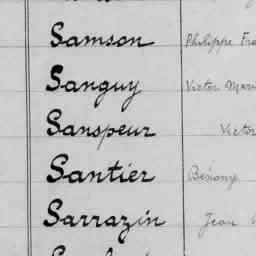 Samson Philippe
Sanguy Victor
Sanspeur Victor
Santier
Sarrazin Jean